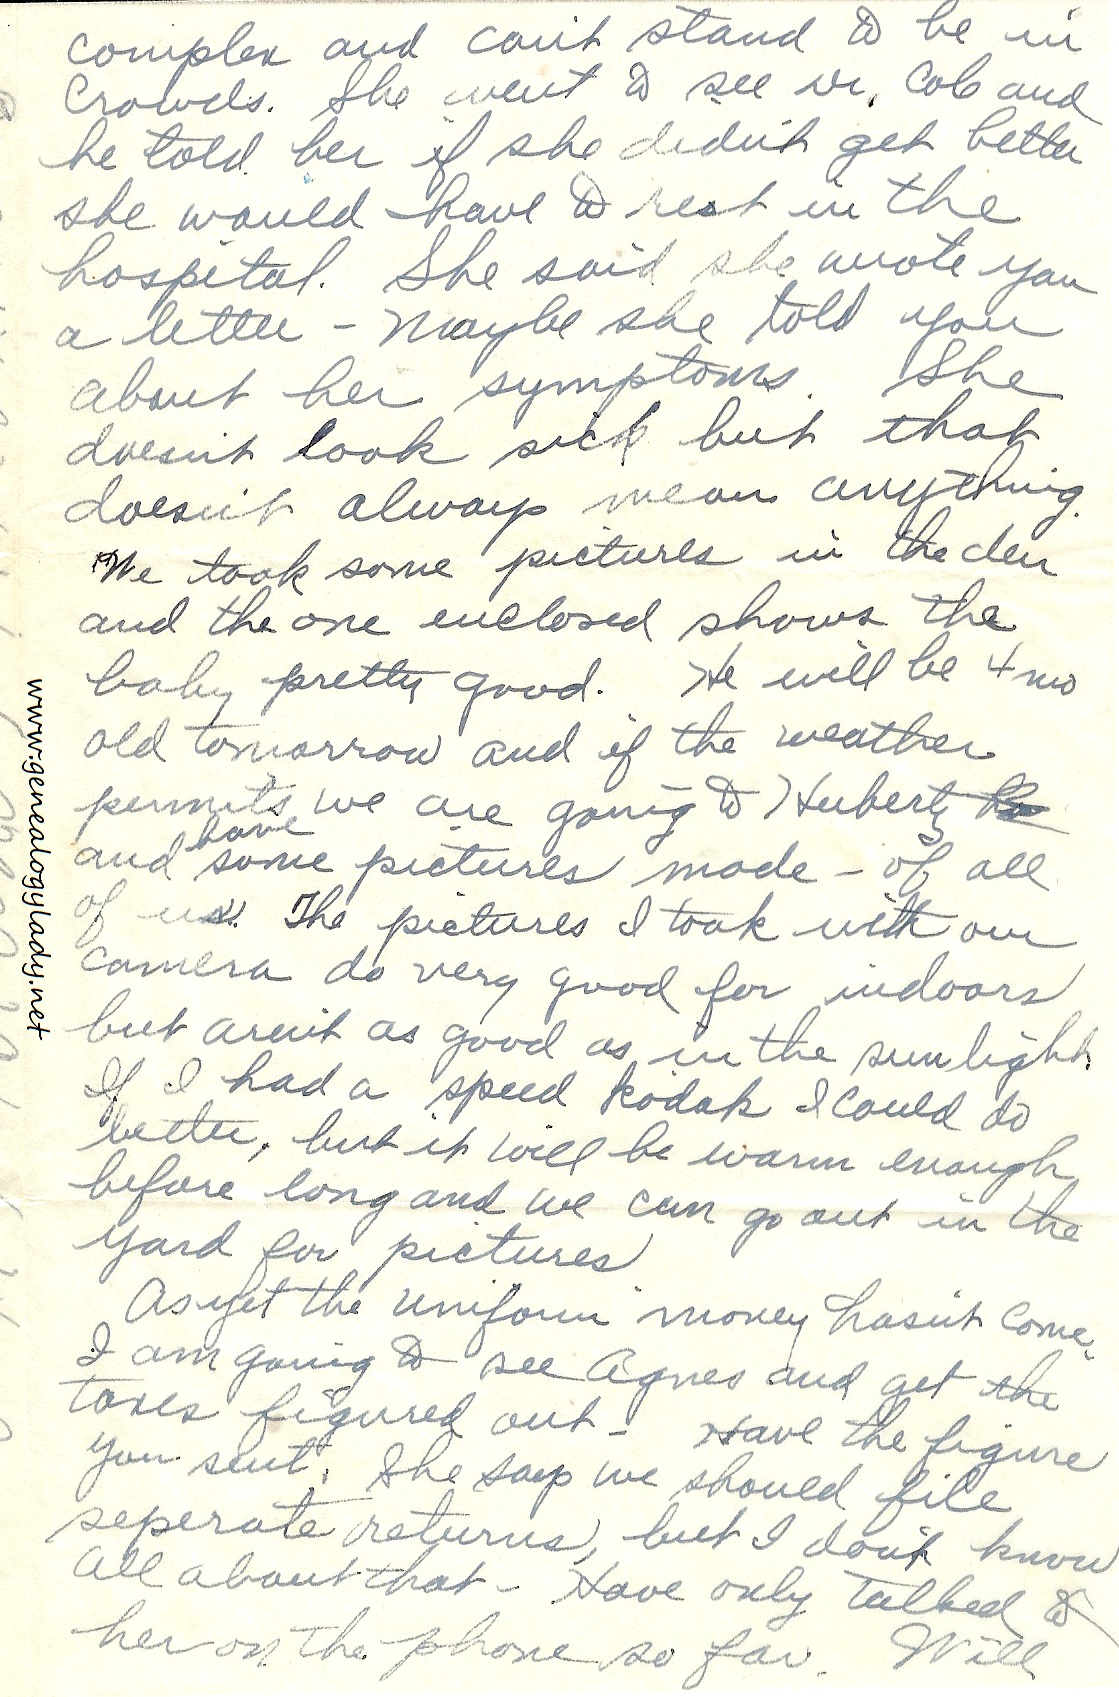 complex and can't stand to be in
crowds. She went to see Dr. Cob and
he told her if she didn't get better
she would have to rest in the
hospital. She said she wrote you
a letter - Maybe she told you
about her symptoms. She
doesn't look sick but that
doesn't always mean anything.
We took some pictures in the den
and the one enclosed shows the
baby pretty good. He will be 4 mo
old tomorrow and if the weather
permits we are going to Huberts
and have some pictures made - of all
of us. The pictures I took with our
camera do very good for indoors
but aren't as good as in the sunlight.
If I had a speed kodak I could do
better, but it will be warm enough
before long and we can go out in the
yard for pictures
As yet the uniform money hasn't come.
I am going to see Agnes and get the
taxes figured out - Have the figure
you sent. She says we should file
seperate returns, but I don't know
all about that - Have only talked to
her on the phone so far. Will
www.genealogylady.net